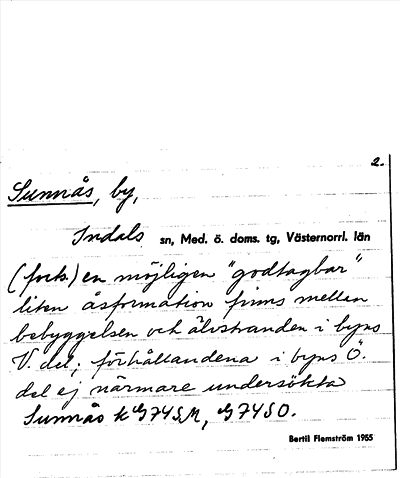 2.
Sunnås, by,
Indals sn, Med. ö. doms. tg, Västernorrl. län
(forts.) en möjligen "godtagbar"
liten åsformation finns mellan
bebyggelsen och älvstranden i byns
V. del; förhållandena i byns Ö.
del ej närmare undersökta
Sunnås k
Bertil Flemström 1955